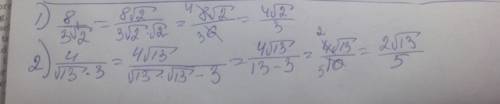 1) 8/(3√2) = 8√2/(3√2·√2) = 8√2/(3·2) = 4√2/3
2) 4/(√13-3) = 4√13/(√13·√13-3) = 4√13/(13-3) = 4√13/10 = 2√13/5